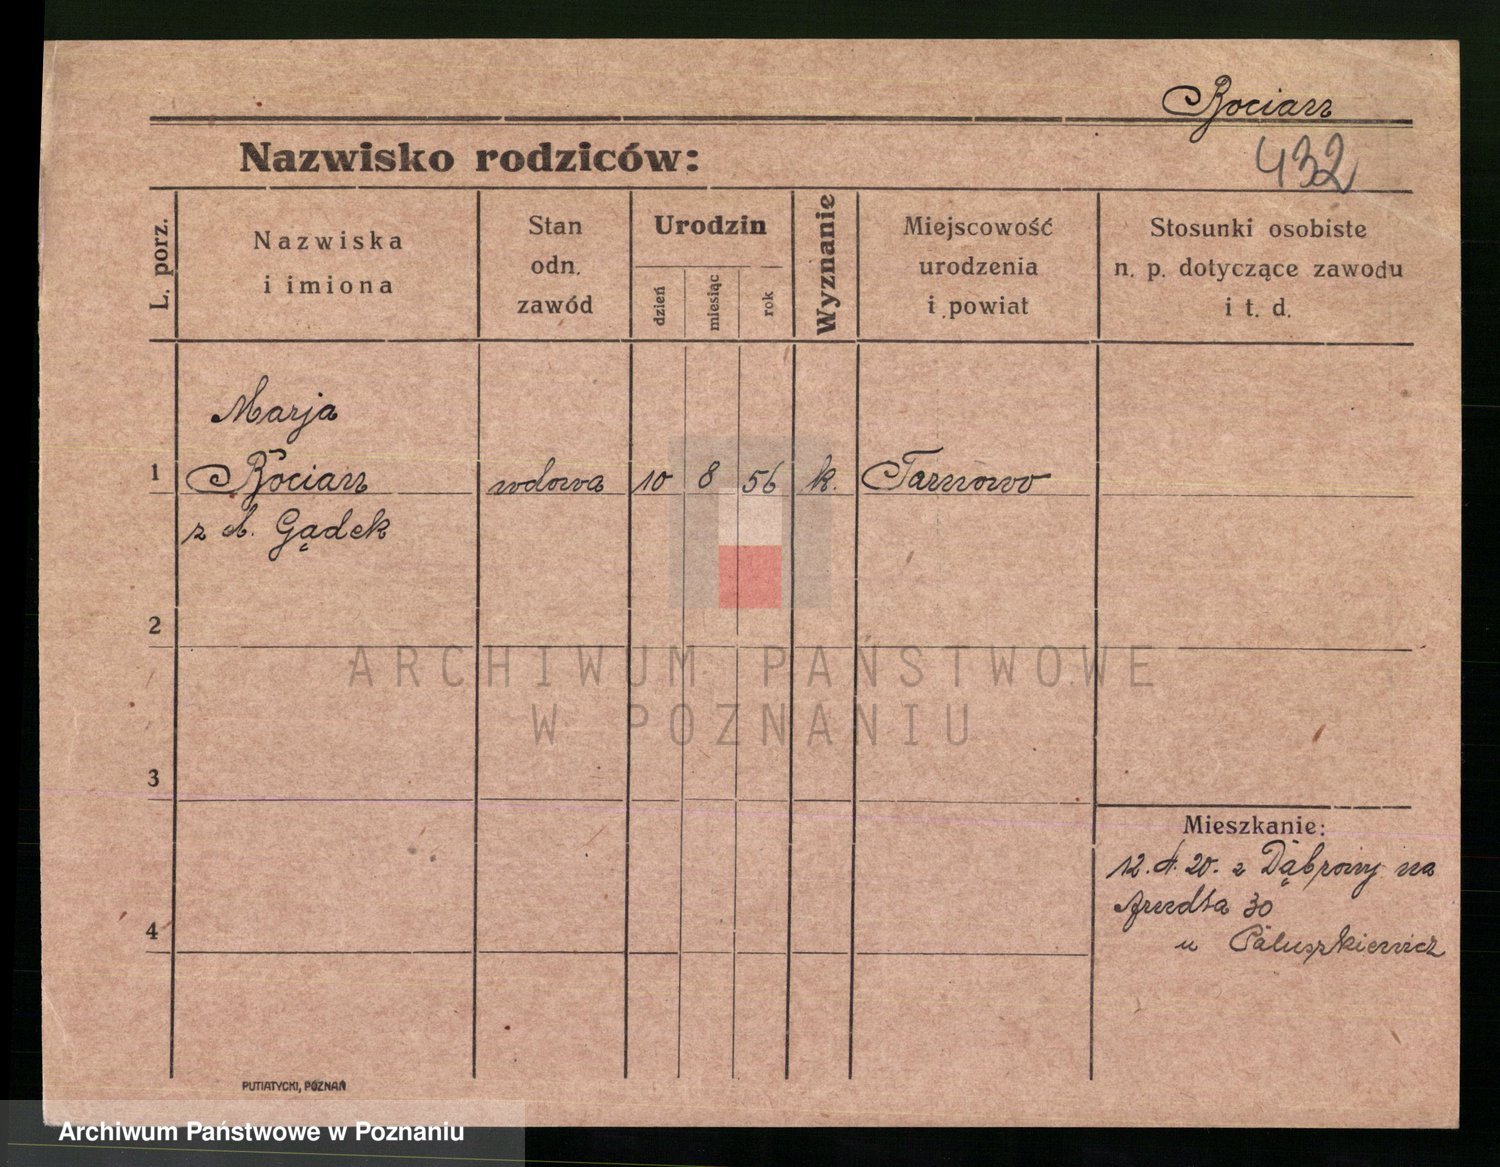 Bocian
432
Nazwisko rodziców:
L. porz.
Nazwiska
i imiona
Stan
odn.
zawód
Urodzin
dzień
miesiąc
rok
Wyznanie
Miejscowość
urodzenia
i powiat
Stosunki osobiste
n. p. dotyczące zawodu
i t. d.
Marja
1 Bocian wdowa 10 8 56 k. Tarnowo
z d. Gądek
2
ARCHIWUM PAŃSTWOWE
W POZNANIU
3
Mieszkanie:
12. 20. z Dąbrowy na
30
4
u Paluszkiewicz
PUTIATYCKI, POZNAŃ
Archiwum Państwowe w Poznaniu